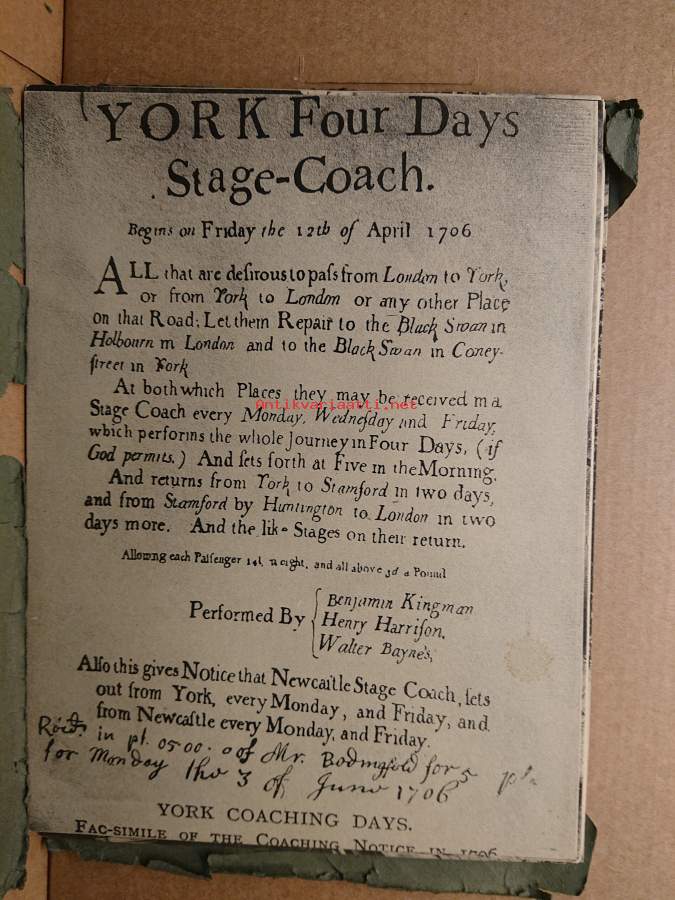 YORK Four Days
Stage-Coach.
Begins on Friday the 12th of April 1706
ALL that are deſirous to paſs from London to York,
or from York to London or any other Place
on that Road; Let them Repair to the Black Swan in
Holbourn in London and to the Black Swan in Coney-
ſtreet in York
At both which Places they may be received in a
Antikvariaatti.net
Stage Coach every Monday, Wedneſday and Friday,
which performs the whole Journey in Four Days, (if
God permits.) And ſets forth at Five in the Morning.
And returns from York to Stamford in two days,
and from Stamford by Huntington to London in two
days more. And the like Stages on their return.
Allowing each Paſſenger 14l. weight, and all above 3d a Pound
Performed By
Benjamin Kingman
Henry Harriſon,
Walter Bayne's,
Alſo this gives Notice that Newcaſtle Stage Coach, ſets
out from York, every Monday, and Friday, and
from Newcaſtle every Monday, and Friday.
in pt. 05.00.0 of Mr. Bodingfold for 5
for Monday the 3 of June 1706
YORK COACHING DAYS.
FAC-SIMILE OF THE COACHING NOTICE IN 1706